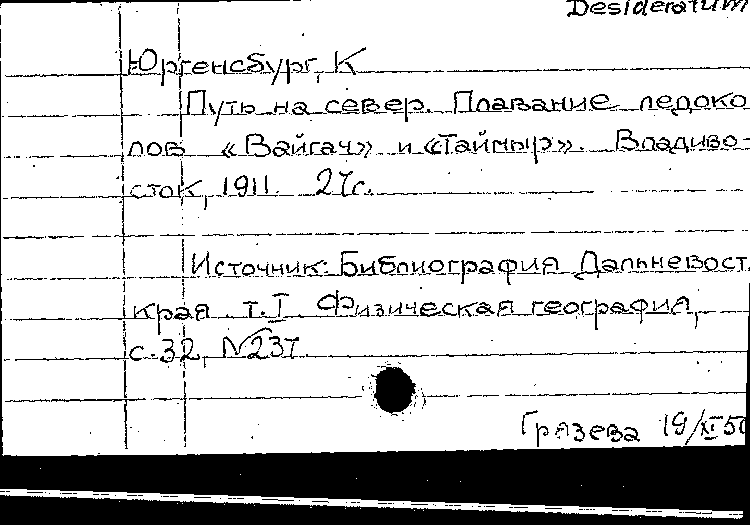 Desideratum
Юргенсбург, К
Путь на север. Плавание ледоко
лов «Вайгач» и «Таймыр». Владиво-
сток, 1911. 27с.
Источник: Библиография Дальневост.
края т.I Физическая география,
с.32, №237.
Грязева 19/XI 50